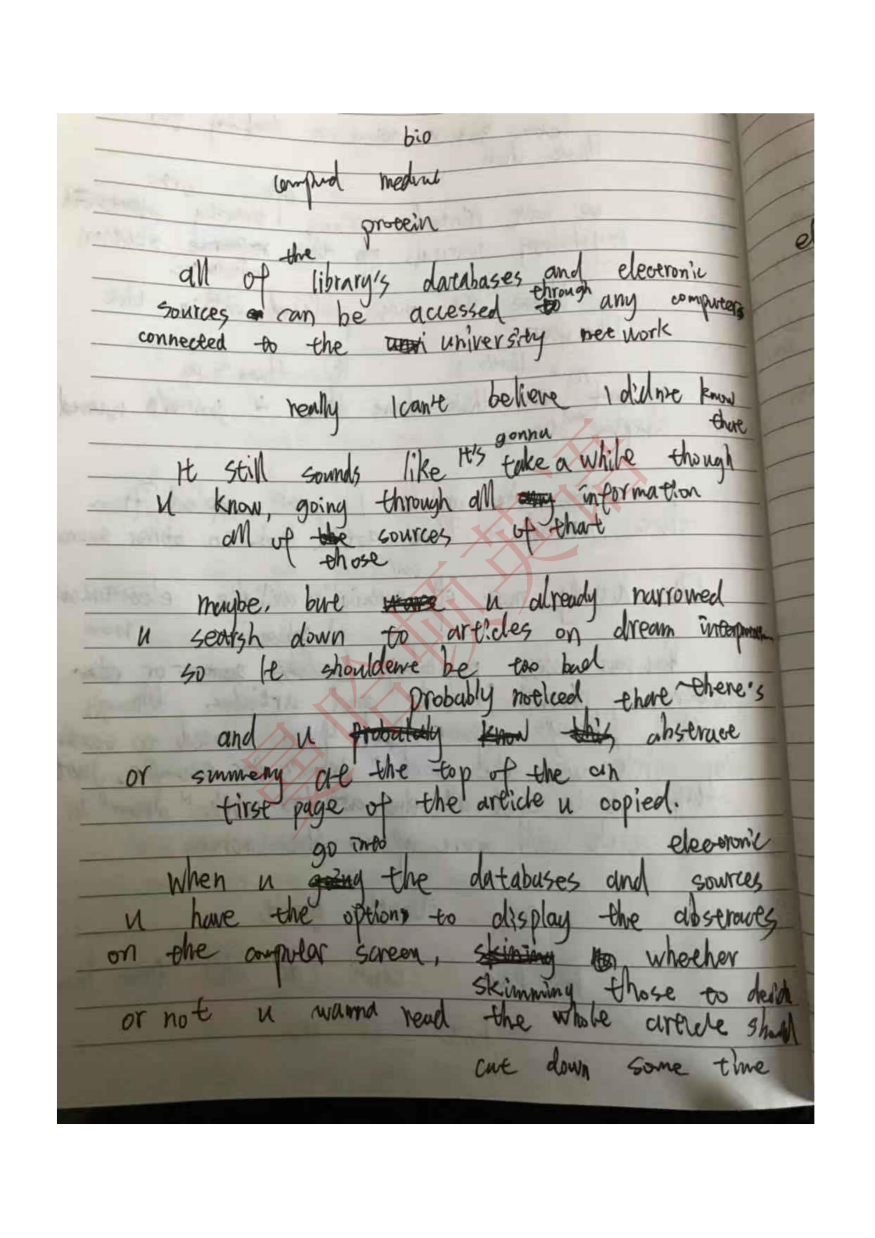 bio
medical
protein
the
all of library's databases and electronic
through
sources can be accessed any computers
connected to the university network
really I can't believe I didn't know
that
gonna
It still sounds like it's take a while though
u know, going through all information
all of sources of that
those
maybe, but u already narrowed
u seatsh down to articles on dream
so it shouldent be too bad
probably noticed that there's
and u abstract
or summery at the top of the an
first page of the article u copied.
go into electronic
when u the databases and sources
u have the options to display the abstracts
on the screen, whether
skimming those to
or not u wanna read the whole article
cut down some time
曼哈顿英语